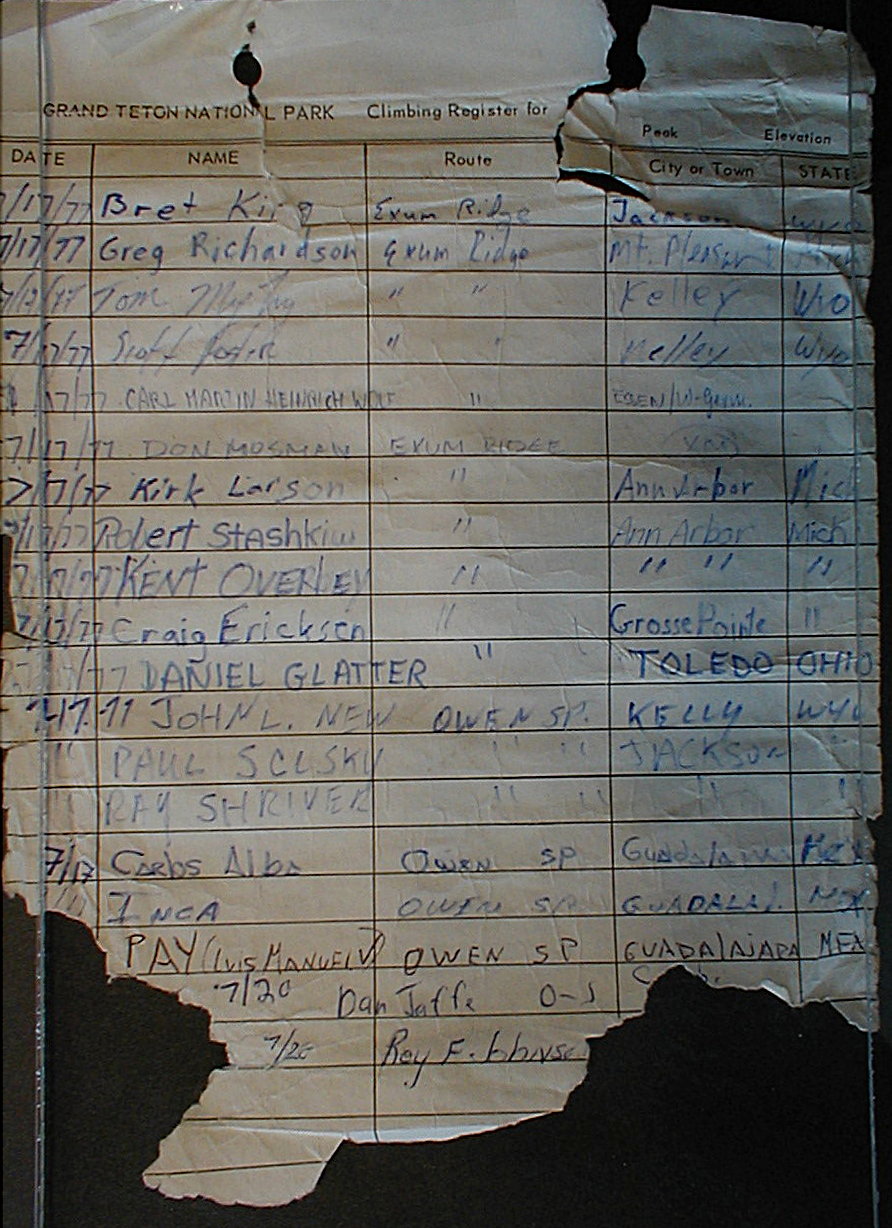 GRAND TETON NATIONAL PARK Climbing Register for
Peak Elevation
DATE NAME Route City or Town STATE
7/17/77 Bret King Exum Ridge Jackson Wyo
7/17/77 Greg Richardson Exum Ridge Mt. Pleasant Mich
Tom " " Kelley Wyo
7/17/77 Scott " " Kelley Wyo
/17/77 CARL MARTIN HEINRICH WOLF " /W-Germ.
7/17/77 DON MOSMAN EXUM RIDGE
7/17/77 Kirk Larson " Ann Arbor Mich
7/17/77 Robert Stashkiw " Ann Arbor Mich
7/17/77 KENT OVERLEY " " " "
7/17/77 Craig Ericksen " Grosse Pointe "
/17/77 DANIEL GLATTER " TOLEDO OHIO
7.17.77 JOHN L. NEW OWEN SP. KELLY WYO
" PAUL SOLSKY " " JACKSON "
" RAY SHRIVER " " " "
7/17 Carlos Alba Owen SP Guadalajara Mex
INCA OWEN SP GUADALAJ. MEX.
PAY (LUIS MANUEL V) OWEN SP GUADALAJARA MEX
7/20 Dan Jaffe O-S
7/20 Roy F.